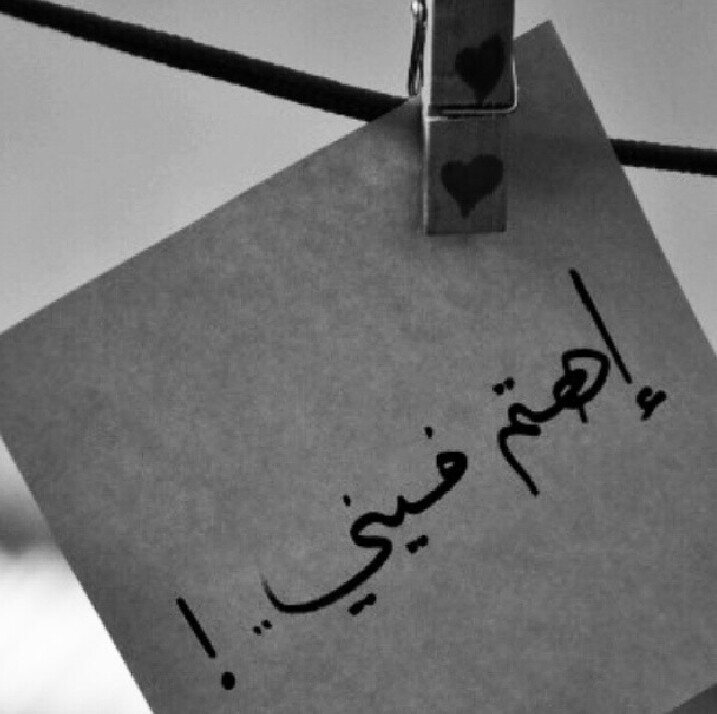 إهتم فيني .. !